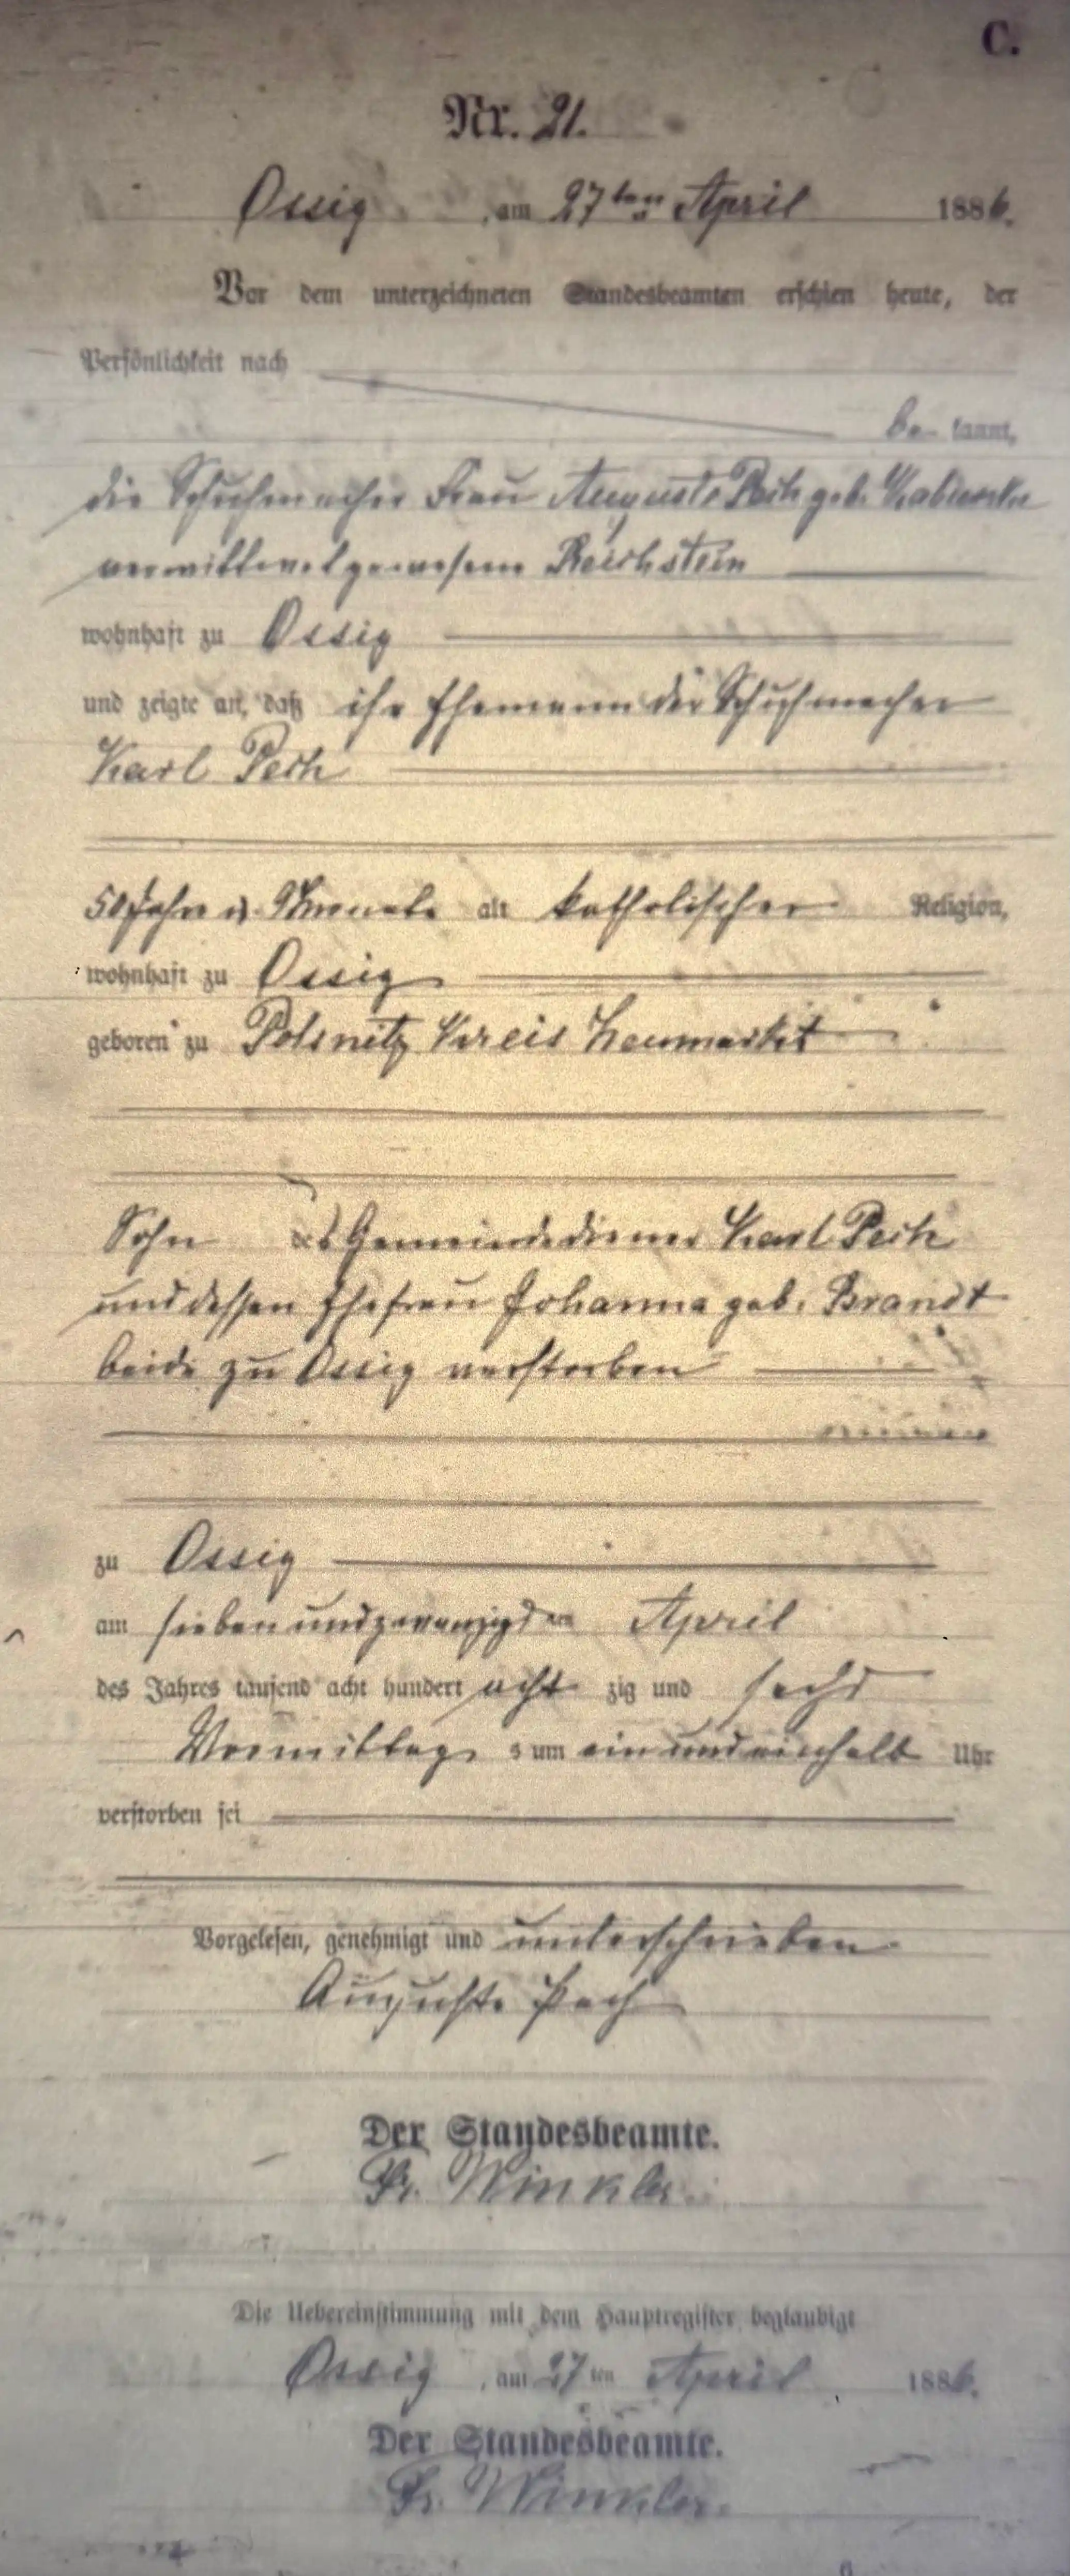 C.
Nr. 21.
Ossig, am 27ten April 1886.
Vor dem unterzeichneten Standesbeamten erschien heute, der
Persönlichkeit nach
be kannt,
die Schuhmacher Frau Auguste Pech geb.
verwittwet gewesene Reichstein
wohnhaft zu Ossig
und zeigte an, daß ihr Ehemann der Schuhmacher
Karl Pech
50 Jahr u. 9 Monate alt katholischer Religion,
wohnhaft zu Ossig
geboren zu Polsnitz Kreis Neumarkt
Sohn des Gemeindediener Karl Pech
und dessen Ehefrau Johanna geb. Brandt
beide zu Ossig verstorben
zu Ossig
am siebenundzwanzigsten April
des Jahres tausend acht hundert acht zig und sechs
Vormittags um ein und einhalb Uhr
verstorben sei
Vorgelesen, genehmigt und unterschrieben
Auguste Pech
Der Standesbeamte.
Fr. Winkler.
Die Uebereinstimmung mit dem Hauptregister beglaubigt
Ossig, am 27ten April 1886.
Der Standesbeamte.
Fr. Winkler.